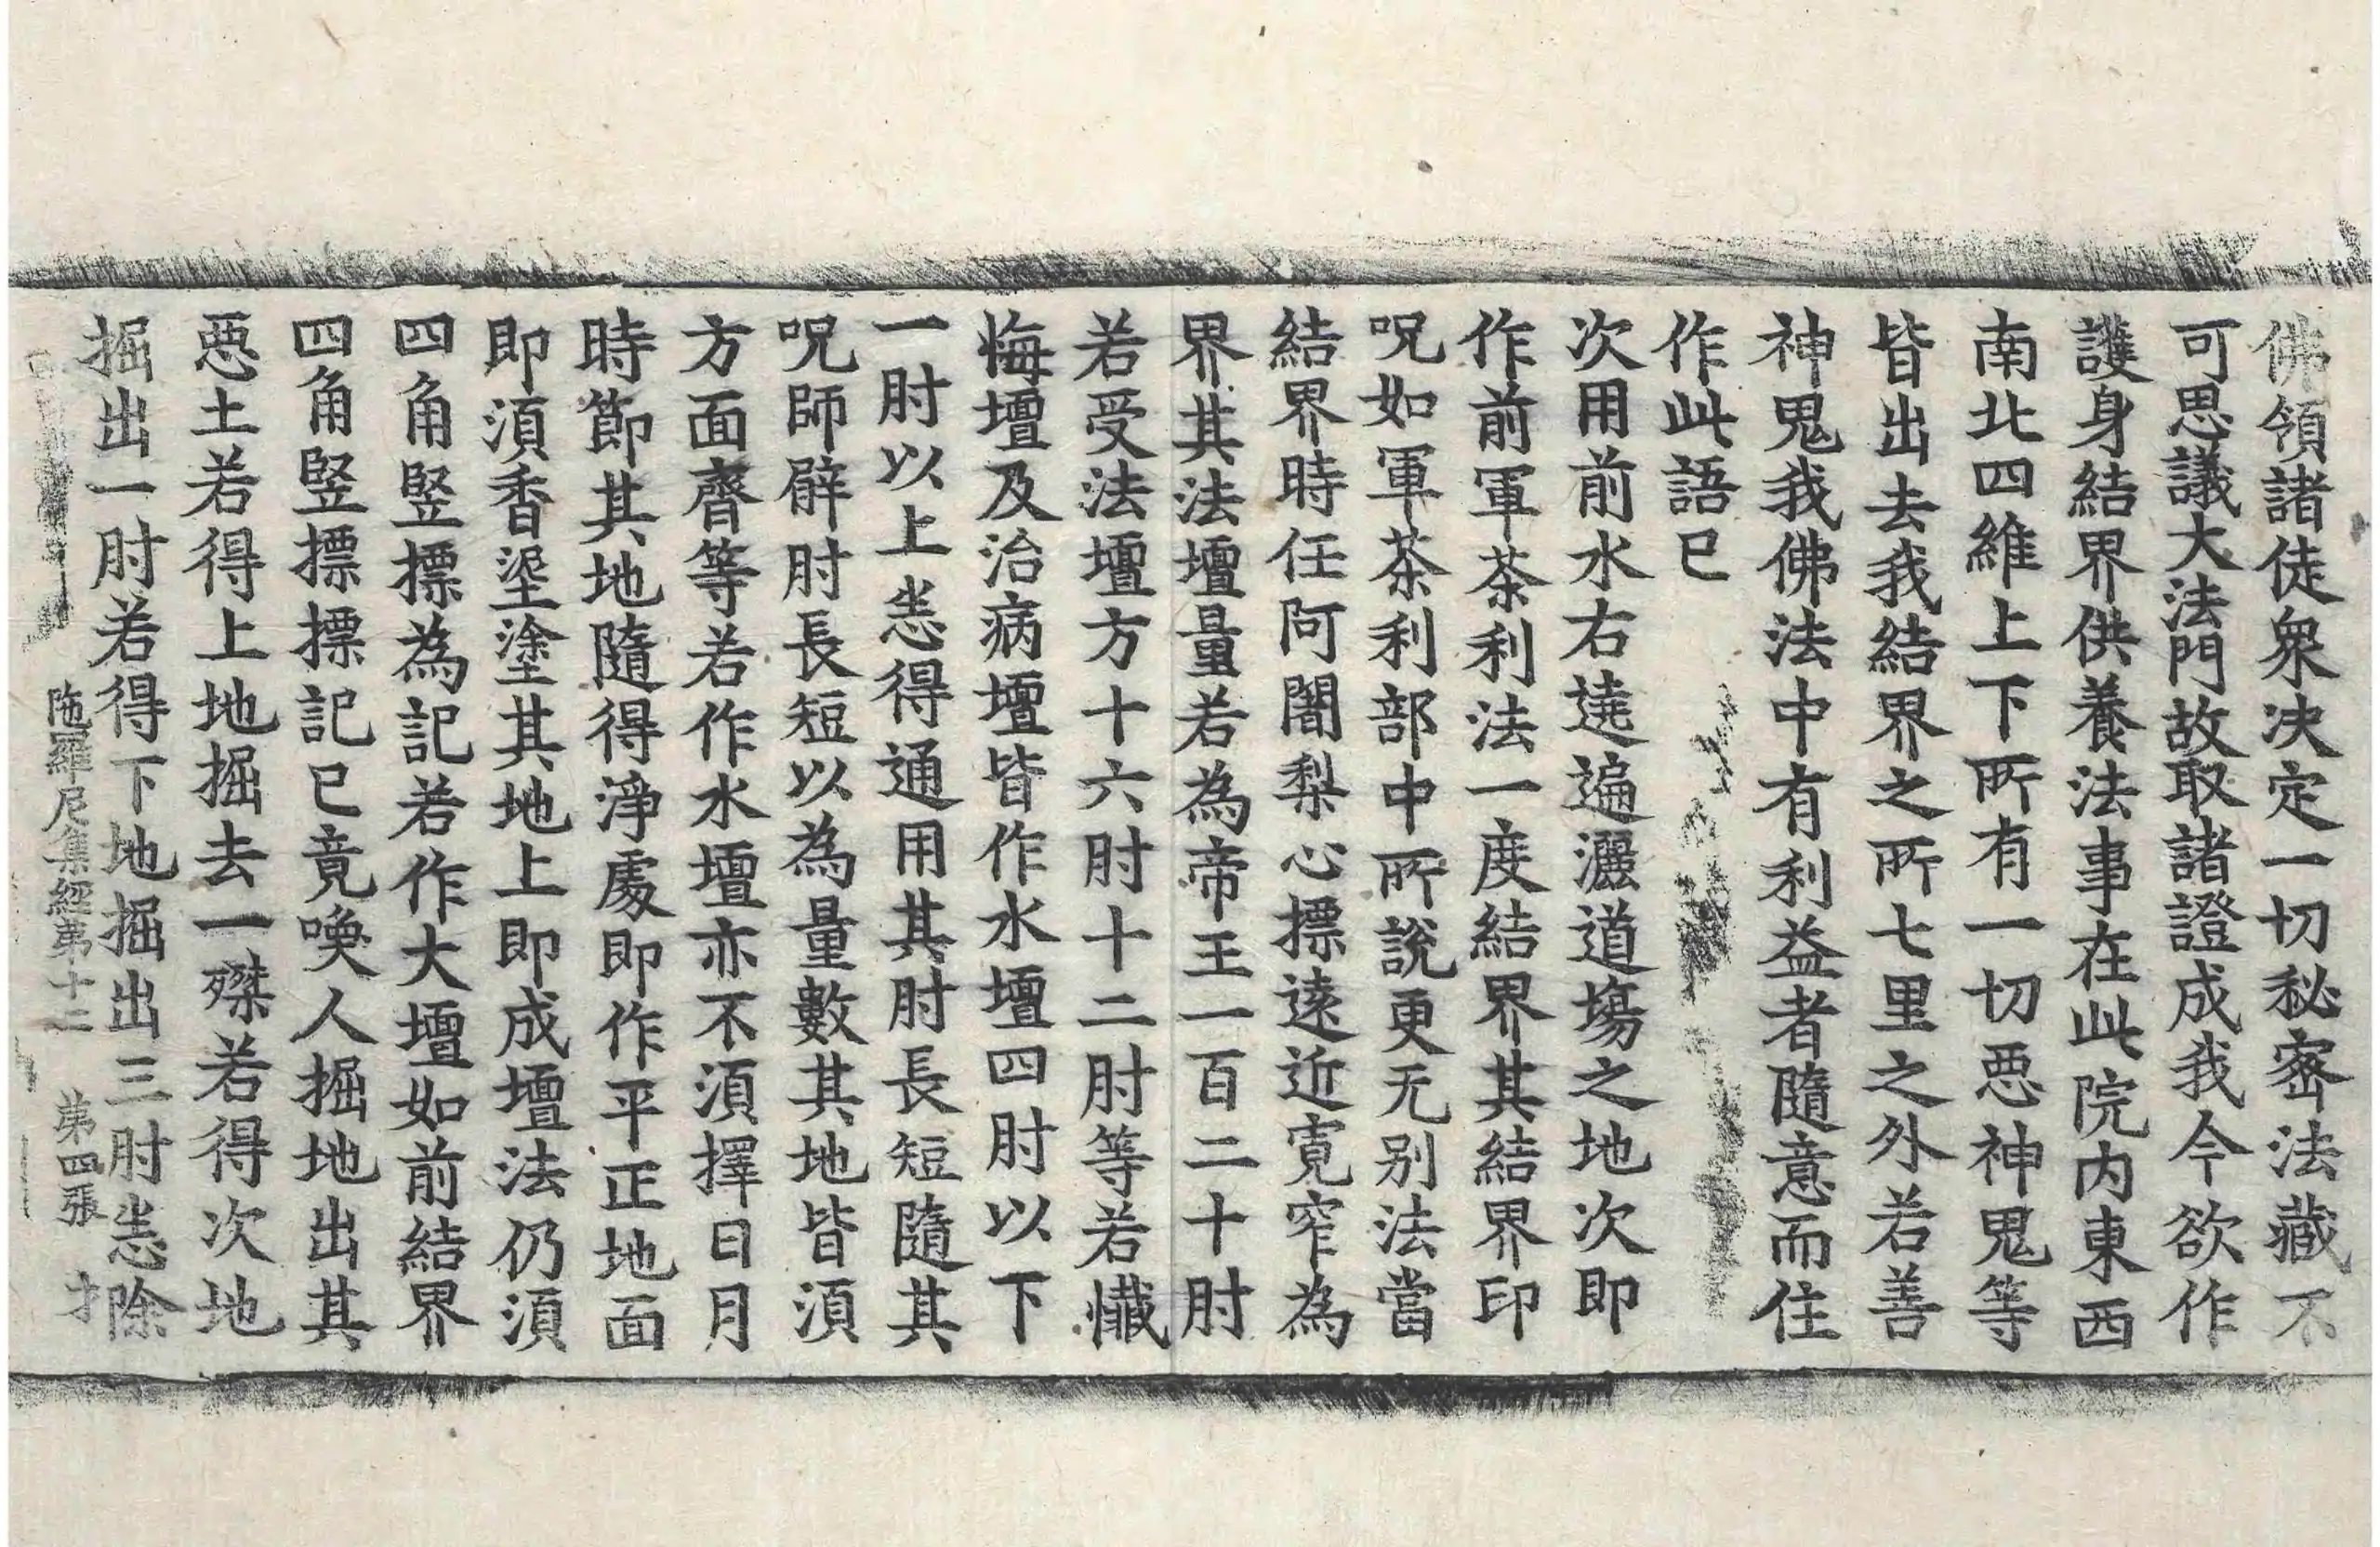 佛領諸徒衆决定一切秘密法藏不
可思議大法門故取諸證成我今欲作
護身結界供養法事在此院内東西
南北四維上下所有一切惡神鬼等
皆出去我結界之所七里之外若善
神鬼我佛法中有利益者隨意而住
作此語已
次用前水右遶遍灑道塲之地次即
作前軍荼利法一度結界其結界印
呪如軍荼利部中所說更无別法當
結界時任阿闍梨心摽遠近寬窄為
界其法壇量若為帝王一百二十肘
若受法壇方十六肘十二肘等若懺
悔壇及治病壇皆作水壇四肘以下
一肘以上悉得通用其肘長短隨其
呪師臂肘長短以為量數其地皆須
方面齊等若作水壇亦不須擇日月
時節其地隨得淨處即作平正地面
即須香埿塗其地上即成壇法仍須
四角竪摽為記若作大壇如前結界
四角竪摽摽記已竟喚人掘地出其
惡土若得上地掘去一磔若得次地
掘出一肘若得下地掘出三肘悉除
陁羅尼集經第十二 第四張 才